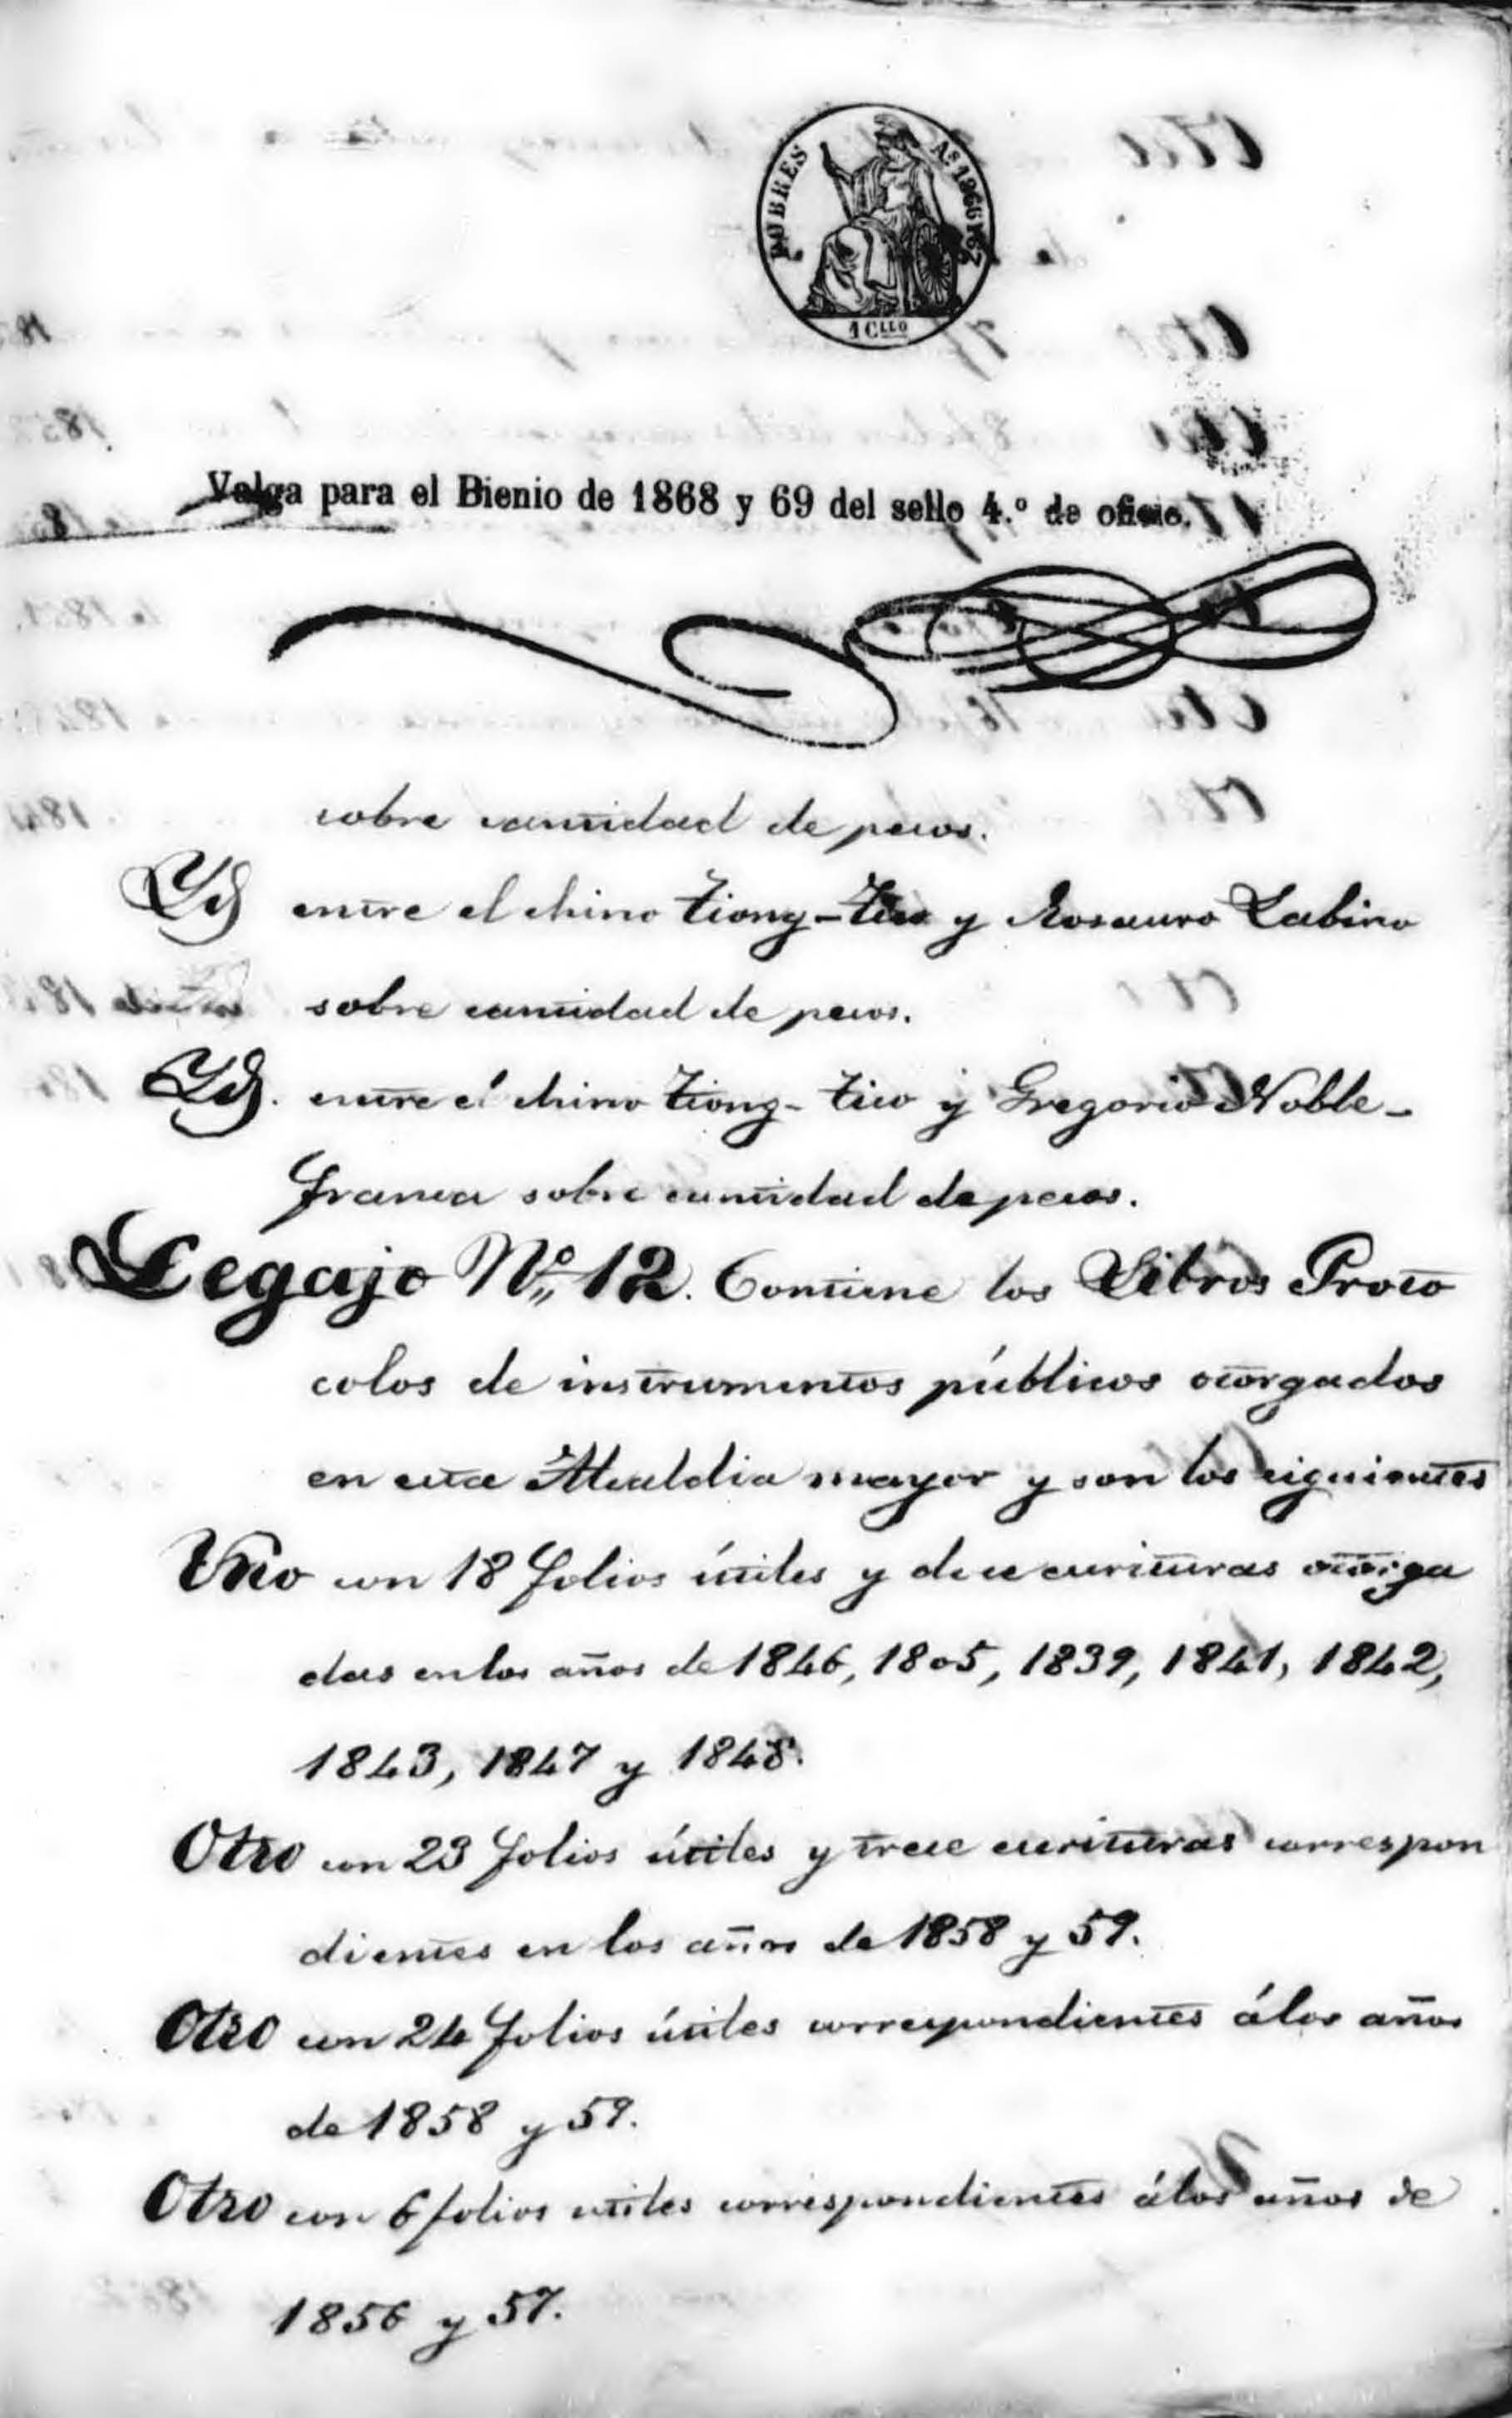 POBRES
Aˢ 1866 Y 67
1 Cˡˡᵒ
Valga para el Bienio de 1868 y 69 del sello 4.º de oficio.
sobre cantidad de pesos.
Yd entre el chino Tiong-Tico y Rosauro Labino
sobre cantidad de pesos.
Yd. entre el chino Tiong-Tico y Gregorio Noble-
franca sobre cantidad de pesos.
Legajo Nº 12. Contiene los Libros Proto
colos de instrumentos públicos otorgados
en esta Alcaldia mayor y son los siguientes
Uno con 18 folios útiles y doce escrituras otorga
das en los años de 1846, 1805, 1839, 1841, 1842,
1843, 1847 y 1848.
Otro con 23 folios útiles y trece escrituras correspon
dientes en los años de 1858 y 59.
Otro con 24 folios útiles correspondientes álos años
de 1858 y 59.
Otro con 6 folios utiles correspondientes álos años de
1856 y 57.